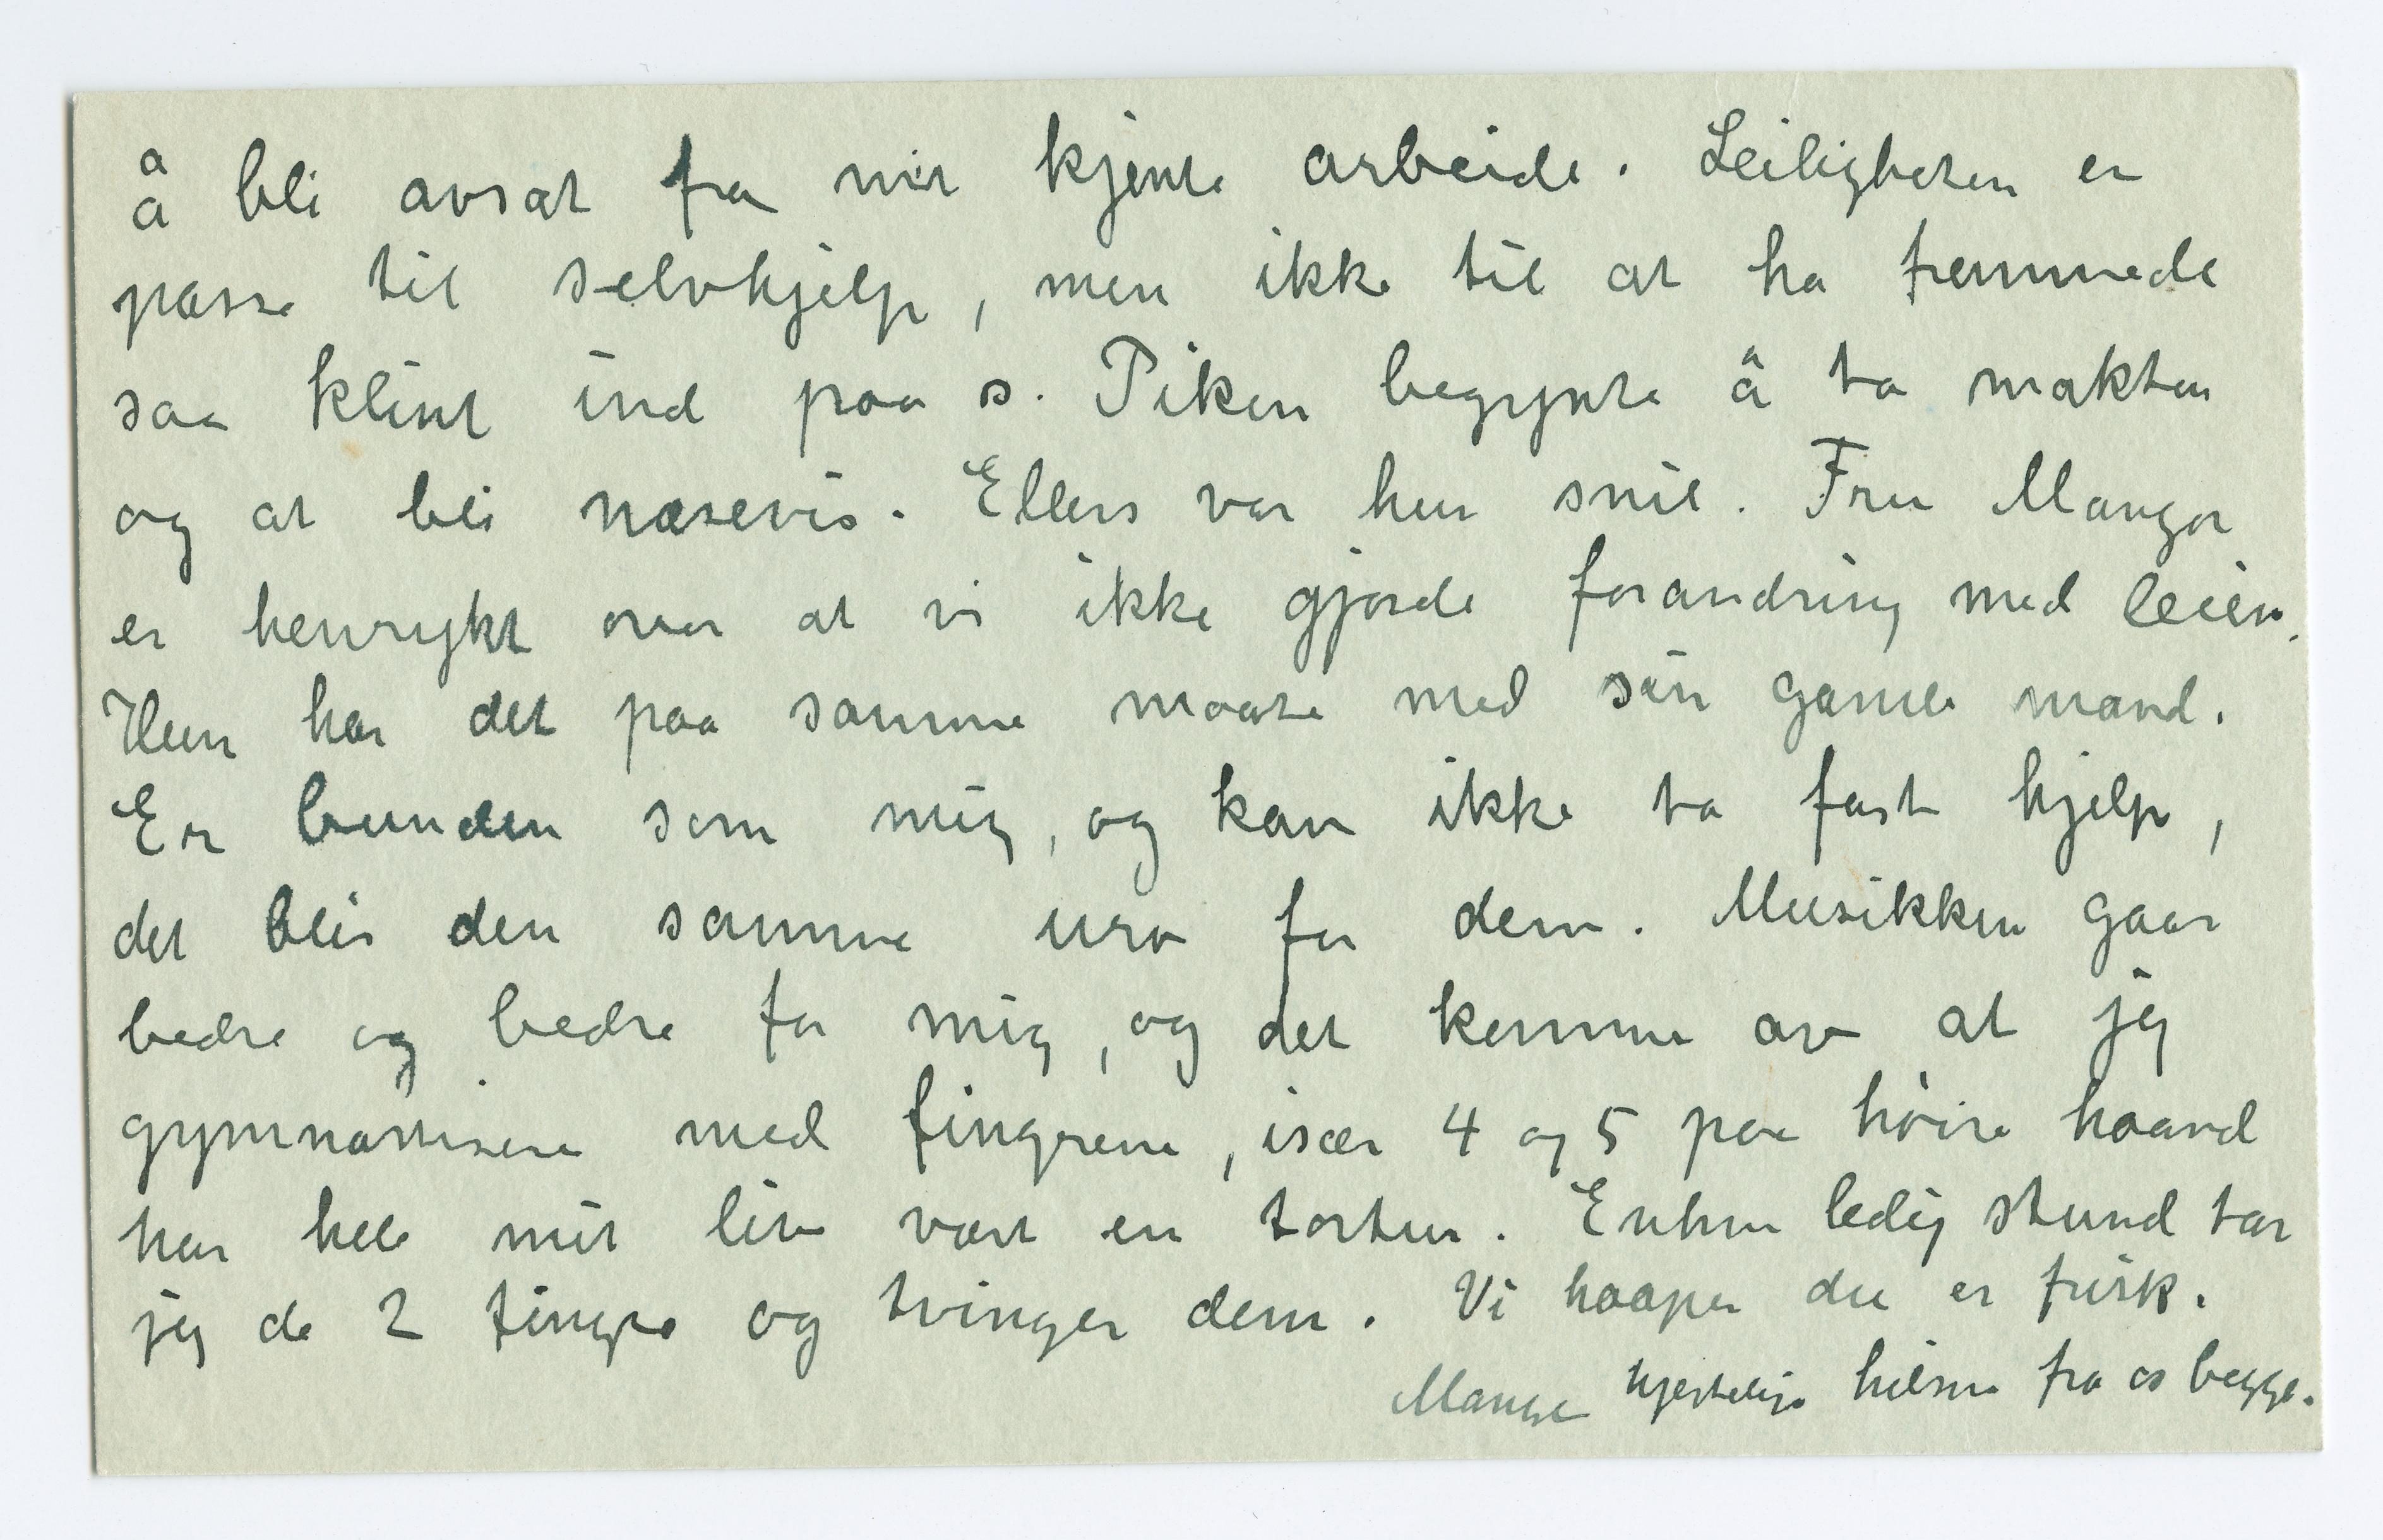 å bli avsat fra mit kjente arbeide. Leiligheten er
passe til selvhjelp, men ikke til at ha fremmede
saa klint ind paa s. Piken begynte å ta makten
og at bli næsevis. Ellers var hun snil. Fru Mangor
er henrykt over at vi ikke gjorde forandring med leien.
Hun har det paa samme maate med sin gamle mand.
Er bunden som mig, og kan ikke ta fast hjelp,
det blir den samme uro for dem. Musikken gaar
bedre og bedre for mig, og det kommer av at jeg
gymnastiserer med fingrene, især 4 og 5 paa høire haand
har hele mit liv vært en tortur. Enhver ledig stund tar
jeg de 2 fingre og tvinger dem. Vi haaper du er frisk.
Mange hjertelige hilsner fra os begge.